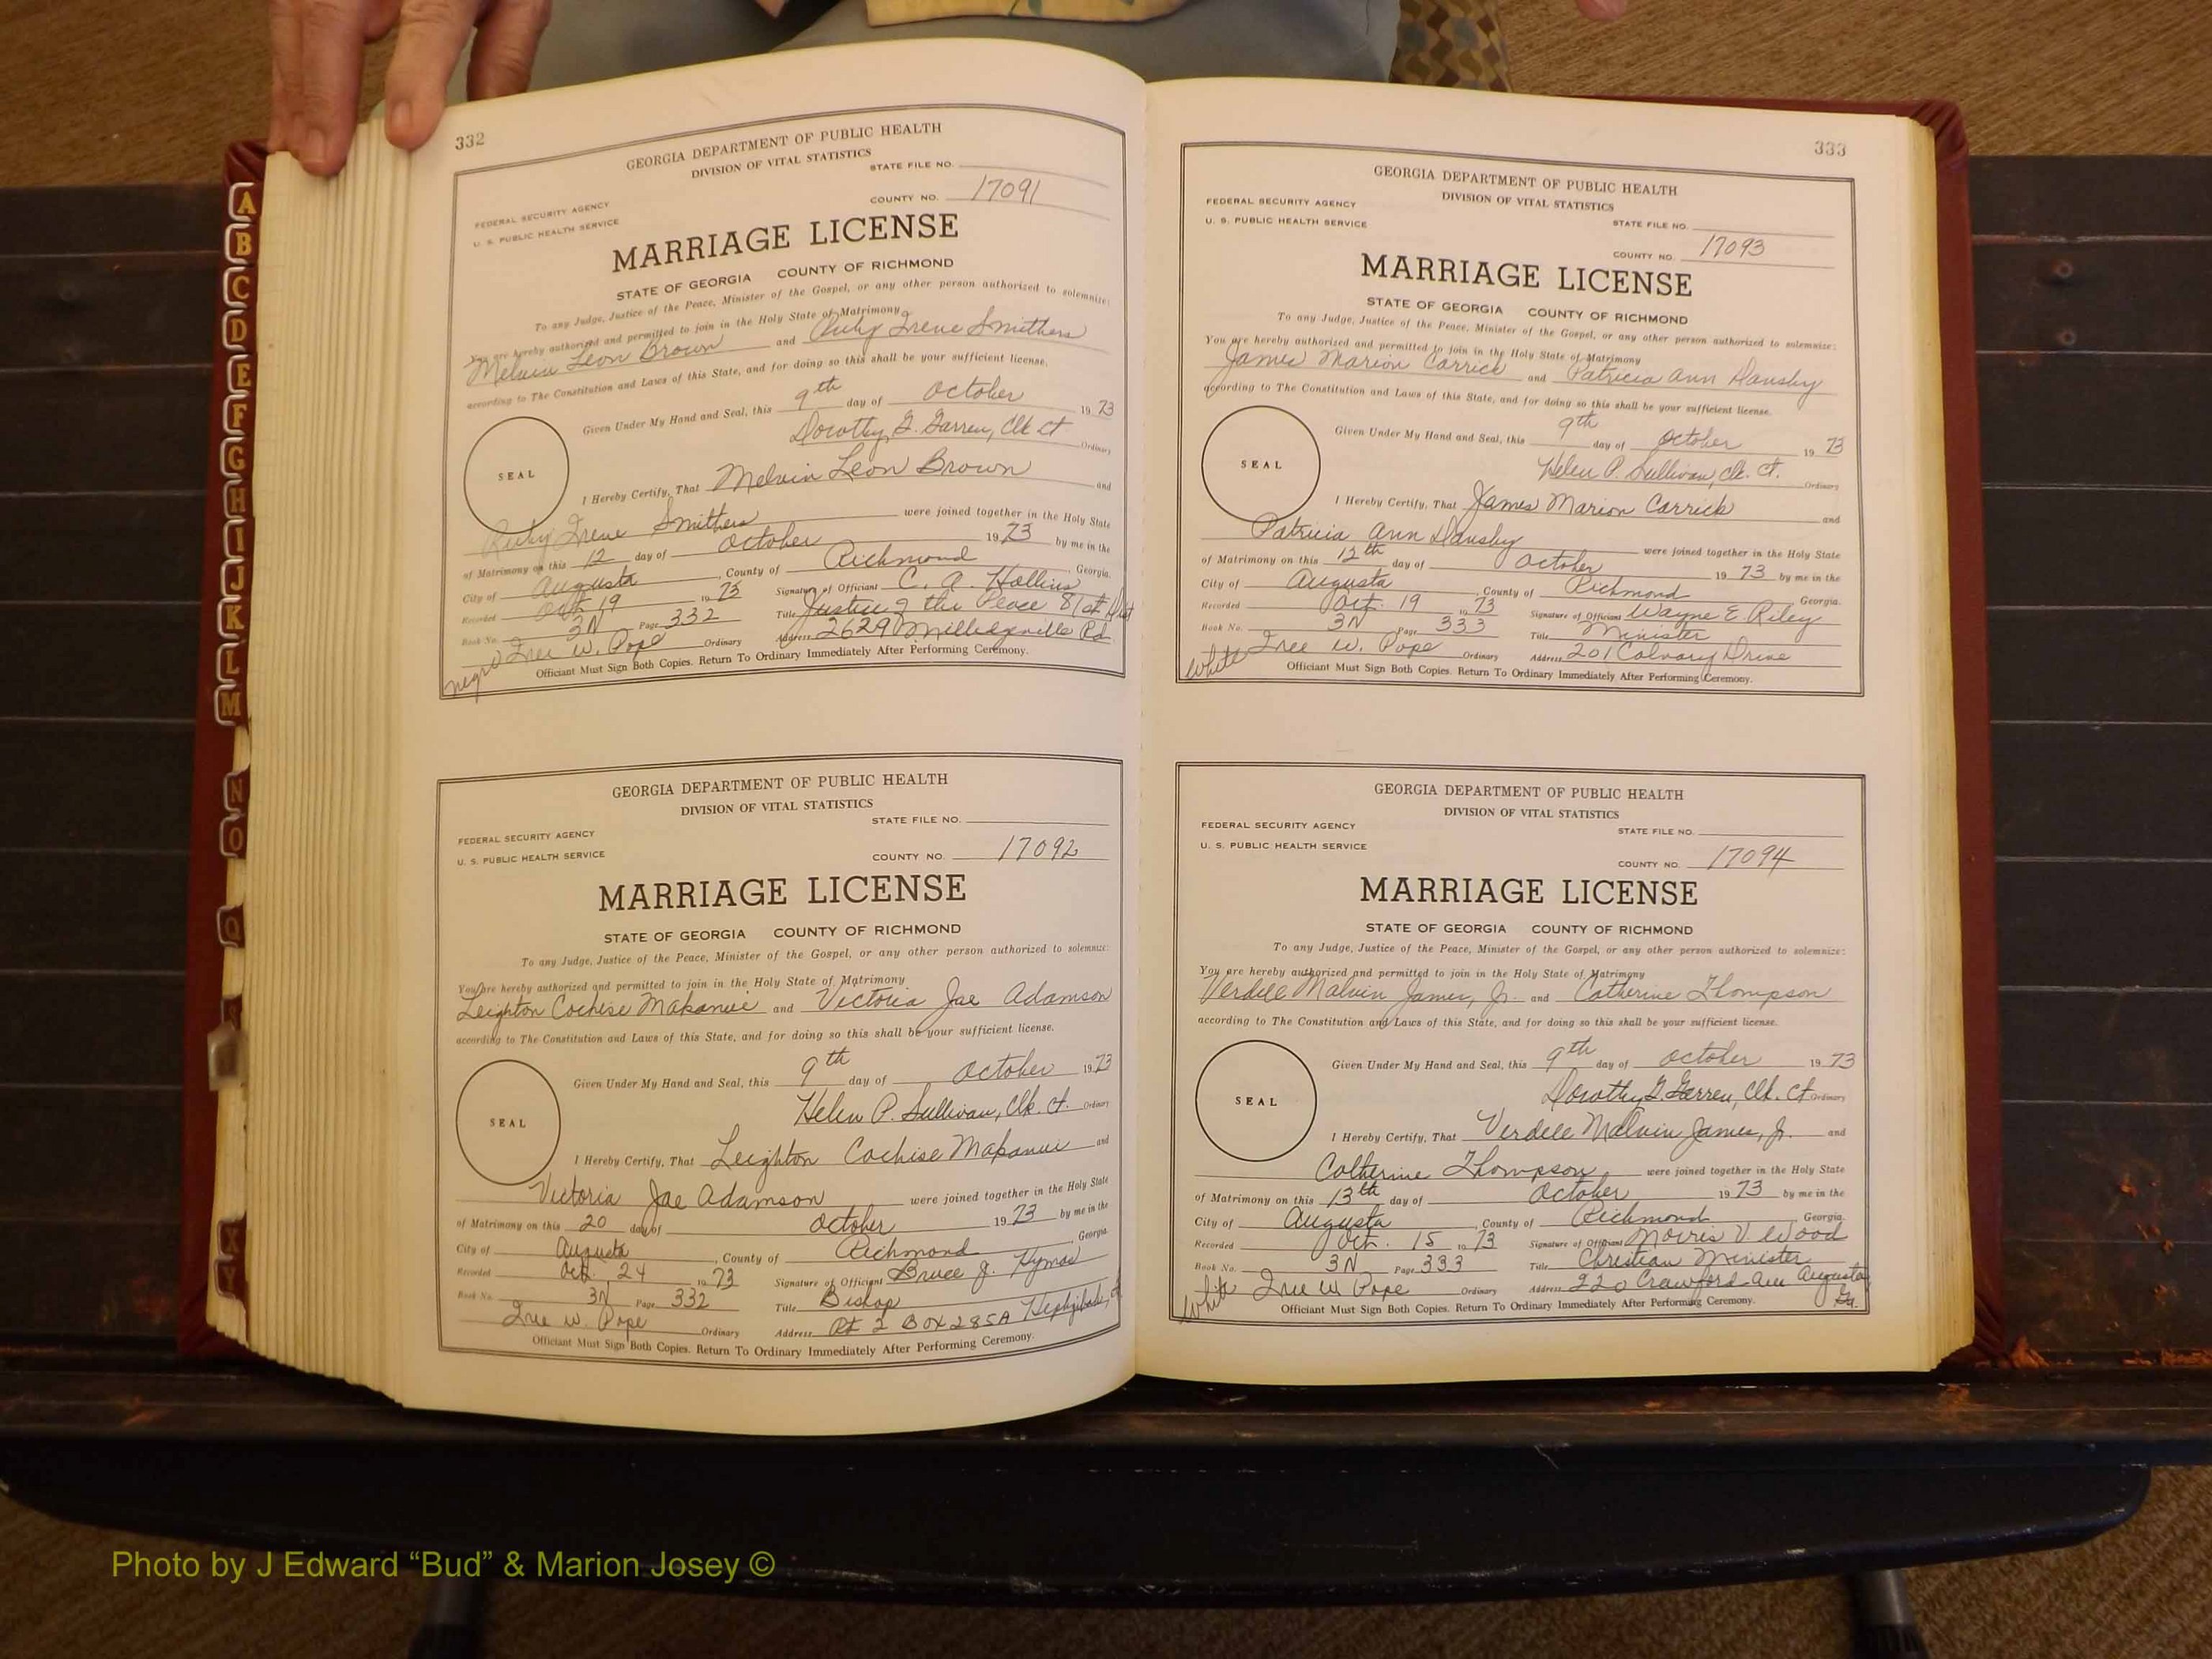 332
GEORGIA DEPARTMENT OF PUBLIC HEALTH
DIVISION OF VITAL STATISTICS
STATE FILE NO.
FEDERAL SECURITY AGENCY
COUNTY NO. 17091
U. S. PUBLIC HEALTH SERVICE
MARRIAGE LICENSE
STATE OF GEORGIA COUNTY OF RICHMOND
To any Judge, Justice of the Peace, Minister of the Gospel, or any other person authorized to solemnize:
You are hereby authorized and permitted to join in the Holy State of Matrimony
Melvin Leon Brown and Ruby Irene Smithers
according to The Constitution and Laws of this State, and for doing so this shall be your sufficient license.
Given Under My Hand and Seal, this 9th day of October 1973
Dorothy G. Garren, Clk Ct Ordinary
SEAL
I Hereby Certify, That Melvin Leon Brown and
Ruby Irene Smithers were joined together in the Holy State
of Matrimony on this 12 day of October 1973 by me in the
City of Augusta, County of Richmond, Georgia.
Recorded Oct 19 1973 Signature of Officiant C. A. Hollins
Book No. 3N Page 332 Title Justice of the Peace 81st Dist
Tree W. Pope Ordinary Address 2629 Milledgeville Rd
negro
Officiant Must Sign Both Copies. Return To Ordinary Immediately After Performing Ceremony.
GEORGIA DEPARTMENT OF PUBLIC HEALTH
DIVISION OF VITAL STATISTICS
STATE FILE NO.
FEDERAL SECURITY AGENCY
U. S. PUBLIC HEALTH SERVICE
COUNTY NO. 17092
MARRIAGE LICENSE
STATE OF GEORGIA COUNTY OF RICHMOND
To any Judge, Justice of the Peace, Minister of the Gospel, or any other person authorized to solemnize:
You are hereby authorized and permitted to join in the Holy State of Matrimony
Leighton Cochise Makanui and Victoria Jae Adamson
according to The Constitution and Laws of this State, and for doing so this shall be your sufficient license.
Given Under My Hand and Seal, this 9th day of October 1973
Helen P. Sullivan, Clk. Ct. Ordinary
SEAL
I Hereby Certify, That Leighton Cochise Makanui and
Victoria Jae Adamson were joined together in the Holy State
of Matrimony on this 20 day of October 1973 by me in the
City of Augusta, County of Richmond, Georgia
Recorded Oct. 24 1973 Signature of Officiant Bruce J. Hymas
Book No. 3N Page 332 Title Bishop
Tree W. Pope Ordinary Address Rt 2 Box 285A Hephzibah,
Officiant Must Sign Both Copies. Return To Ordinary Immediately After Performing Ceremony.
333
GEORGIA DEPARTMENT OF PUBLIC HEALTH
DIVISION OF VITAL STATISTICS
FEDERAL SECURITY AGENCY
U. S. PUBLIC HEALTH SERVICE
STATE FILE NO.
COUNTY NO. 17093
MARRIAGE LICENSE
STATE OF GEORGIA COUNTY OF RICHMOND
To any Judge, Justice of the Peace, Minister of the Gospel, or any other person authorized to solemnize:
You are hereby authorized and permitted to join in the Holy State of Matrimony
James Marion Carrick and Patricia Ann Dansby
according to The Constitution and Laws of this State, and for doing so this shall be your sufficient license.
Given Under My Hand and Seal, this 9th day of October 1973
Helen P. Sullivan, Clk. Ct. Ordinary
SEAL
I Hereby Certify, That James Marion Carrick and
Patricia Ann Dansby were joined together in the Holy State
of Matrimony on this 12th day of October 1973 by me in the
City of Augusta, County of Richmond Georgia.
Recorded Oct. 19 1973 Signature of Officiant Wayne E Riley
Book No. 3N Page 333 Title Minister
Tree W. Pope Ordinary Address 201 Calvary Drive
White
Officiant Must Sign Both Copies. Return To Ordinary Immediately After Performing Ceremony.
GEORGIA DEPARTMENT OF PUBLIC HEALTH
DIVISION OF VITAL STATISTICS
FEDERAL SECURITY AGENCY
STATE FILE NO.
U. S. PUBLIC HEALTH SERVICE
COUNTY NO. 17094
MARRIAGE LICENSE
STATE OF GEORGIA COUNTY OF RICHMOND
To any Judge, Justice of the Peace, Minister of the Gospel, or any other person authorized to solemnize:
You are hereby authorized and permitted to join in the Holy State of Matrimony
Verdele Malvin James, Jr. and Catherine Thompson
according to The Constitution and Laws of this State, and for doing so this shall be your sufficient license.
Given Under My Hand and Seal, this 9th day of October 1973
Dorothy G. Garren, Clk. Ct Ordinary
SEAL
I Hereby Certify, That Verdele Malvin James, Jr. and
Catherine Thompson were joined together in the Holy State
of Matrimony on this 13th day of October 1973 by me in the
City of Augusta, County of Richmond, Georgia.
Recorded Oct. 15 1973 Signature of Officiant Morris V. Wood
Book No. 3N Page 333 Title Christian Minister
Tree W Pope Ordinary Address 220 Crawford Ave Augusta
Ga.
White
Officiant Must Sign Both Copies. Return To Ordinary Immediately After Performing Ceremony.
A
B
C
D
E
F
G
H
I
J
K
L
M
N
O
Q
S
X
Y
Photo by J Edward “Bud” & Marion Josey ©